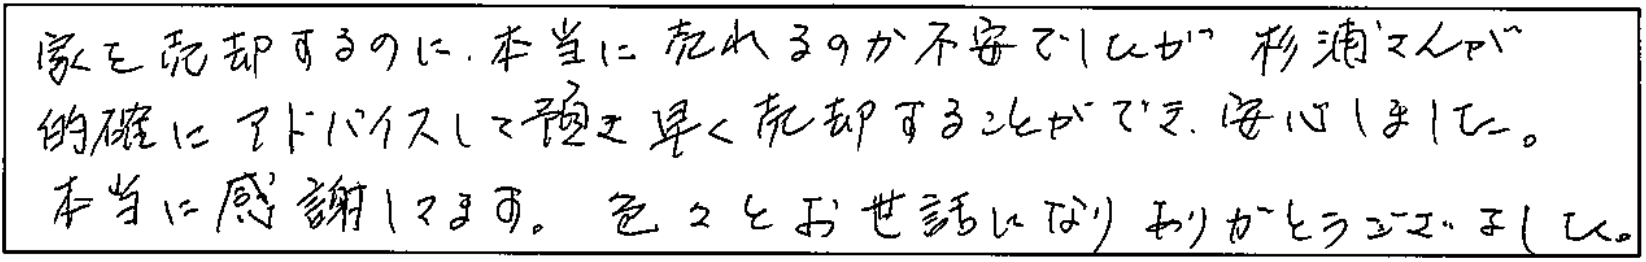 家を売却するのに、本当に売れるのか不安でしたが 杉浦さんが
的確にアドバイスして頂き早く売却することができ、安心しました。
本当に感謝してます。色々とお世話になりありがとうございました。